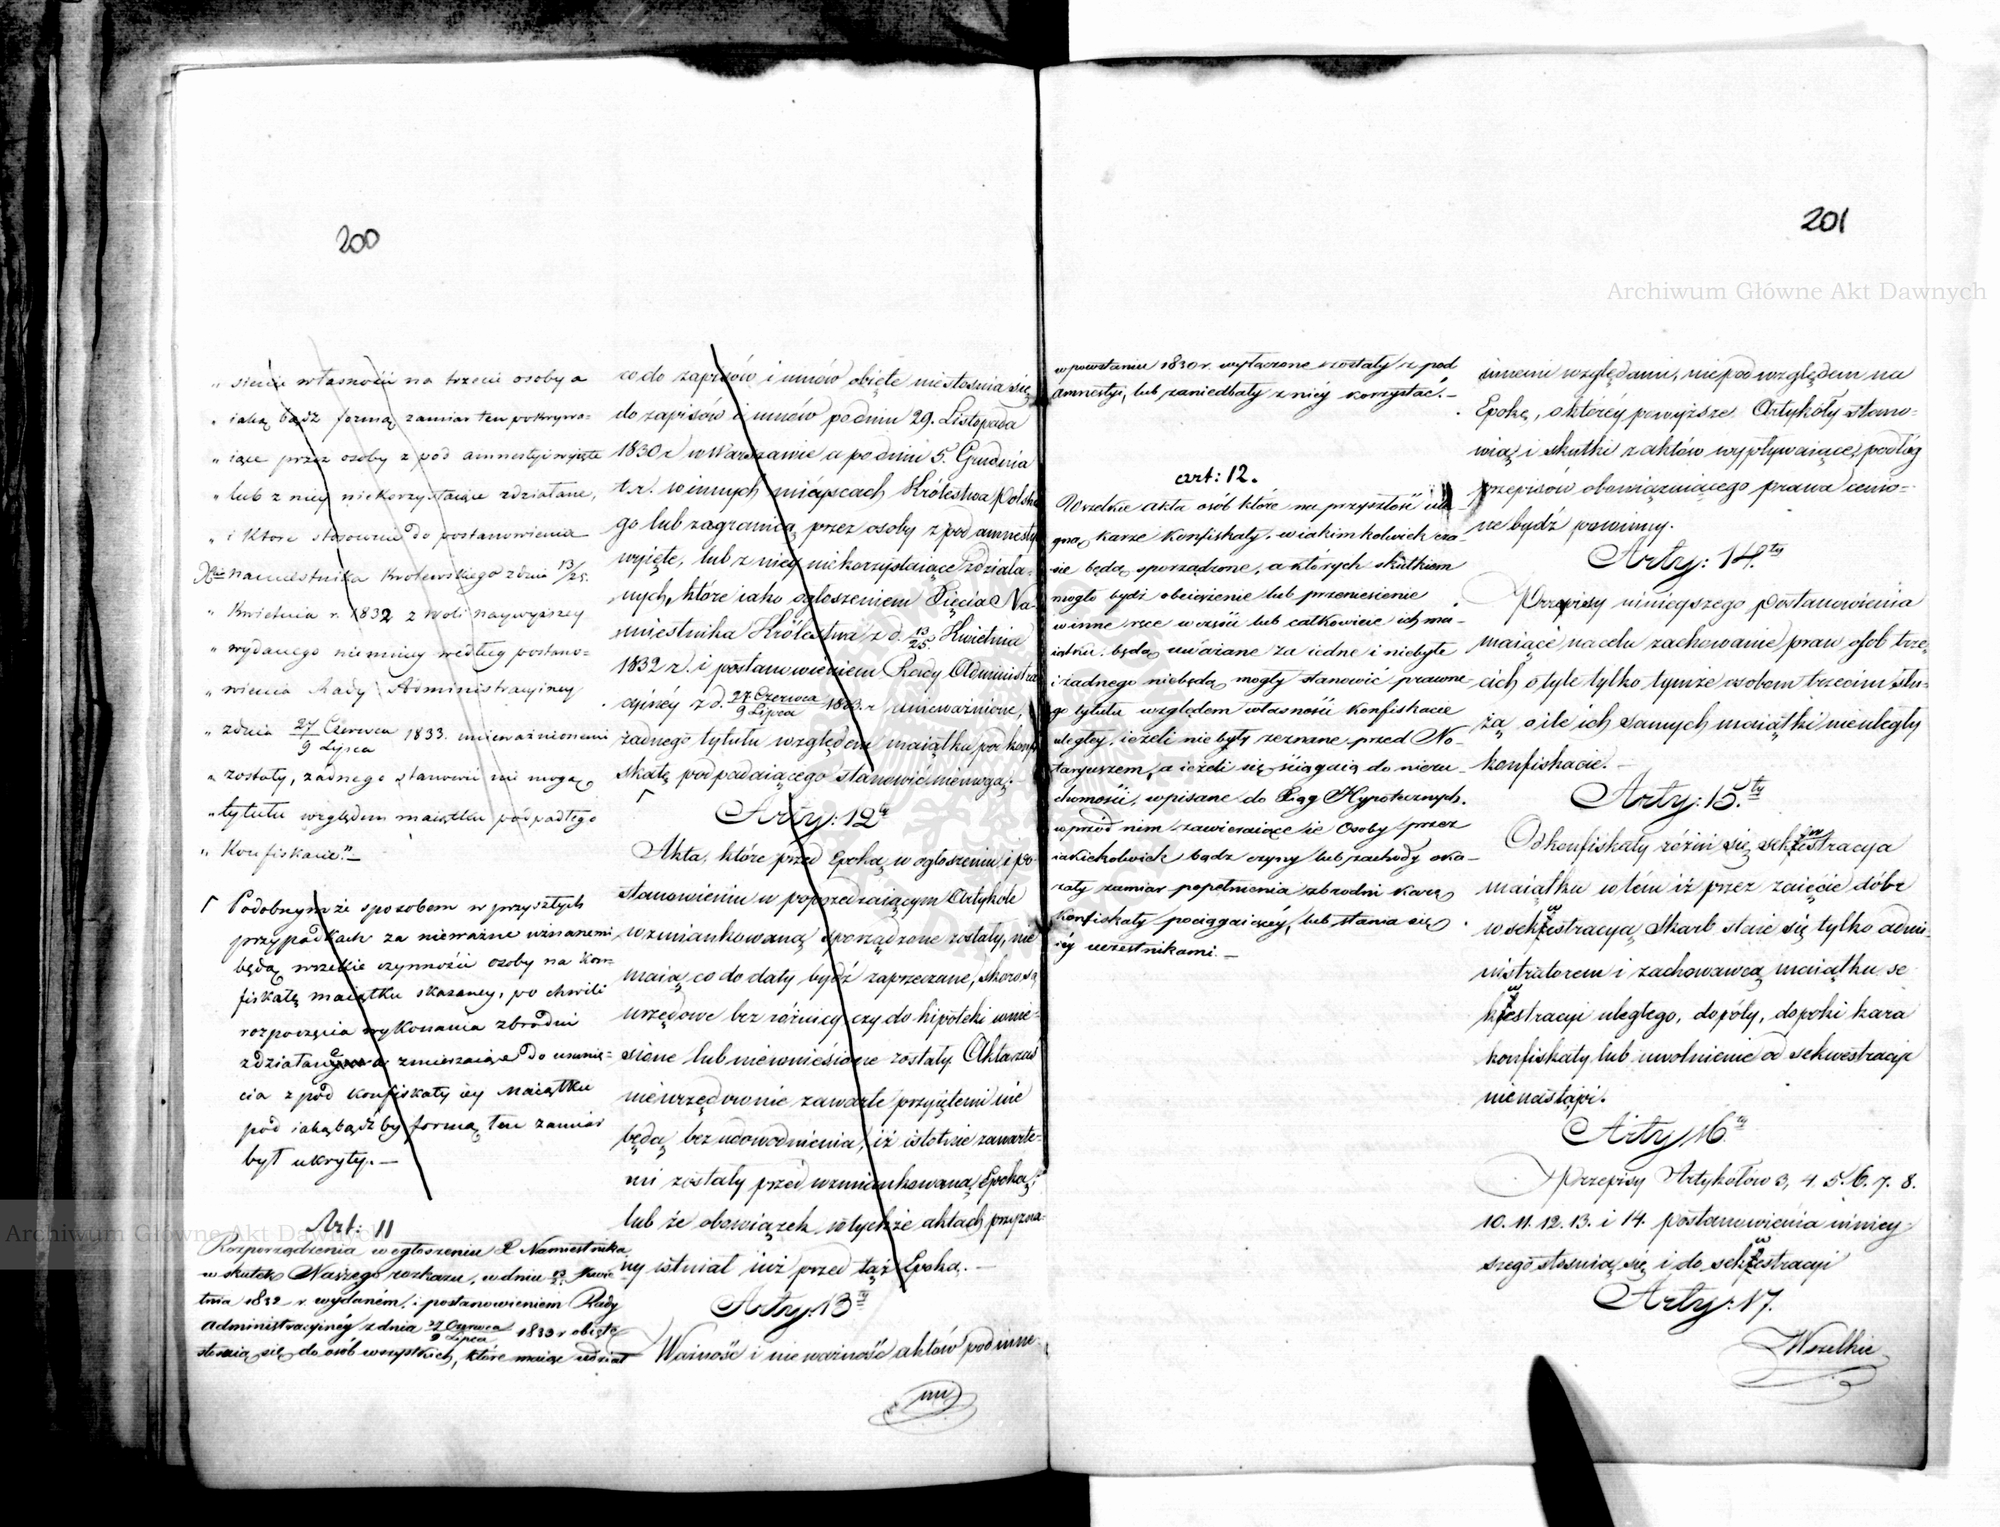 200
„ sienie własności na trzecie osoby a
„ iaką bądz formą zamiar ten pokrywa-
„ iące przez osoby z pod amnestyi wyięte
„ lub z niey niekorzystaiące zdziałane,
„ i które stosownie do postanowienia
Xcia namiestnika Królewskiego z dnia 13/25.
„ Kwietnia r. 1832 z woli naywyższey
„ wydanego niemniey według postano-
„ wienia Rady Administracyiney
„ z dnia 27 Czerwca / 9 Lipca 1833. unieważnionemi
„ zostały, żadnego stanowić nie mogą
„ tytułu względem maiątku podpadłego
„ Konfiskacie." —
Γ Podobnymże sposobem w przyszłych
przypadkach za nieważne uznanemi
będą wszelkie czynności osoby na kon-
fiskatę maiątku skazaney, po chwili
rozpoczęcia wykonania zbrodni
zdziałane a zmierzaiące do usunię-
cia z pod konfiskaty iey Maiątku
pod iakąbądźby formą ten zamiar
był ukryty. —
Art: 11
Rozporządzenia w ogłoszeniu X Namiestnika
w skutek Naszego rozkazu, w dniu 13/25 Kwie-
tnia 1832 r. wydaném, i postanowieniem Rady
Administracyinéy z dnia 27 Czerwca / 9 Lipca 1833 r obięte
stosuią się do osób wszystkich, które maiąc udział
co do zapisów i umów obięte nie stosuią się
do zapisów i umów po dniu 29. Listopada
1830 r. w Warszawie a po dniu 5. Grudnia
t. r. w innych mieyscach Królestwa Polskie
go lub zagranicą przez osoby z pod amnestyi
wyięte, lub z niey niekorzystaiące zdziała-
nych, które iako ogłoszeniem Xięcia Na-
miestnika Królestwa z d. 13/25 Kwietnia
1832 r. i postanowieniem Rady Administra
cyinéy z d. 27 Czerwca / 9 Lipca 1833. r. unieważnione,
żadnego tytułu względem maiątku pod konfi
skatę podpadaiącego stanowić niemogą.
Arty: 12ty
Akta, które przed Epoką w ogłoszeniu i po-
stanowieniu w poprzedzaiącym Artykule
wzmiankowaną sporządzone zostały, nie
maią co do daty bydź zaprzeczane, skoro są
urzędowe bez różnicy czy do hipoteki wnie-
sione lub niewniesione zostały. Akta zaś
nieurzędownie zawarte przyiętemi nie
będą bez udowodnienia, iż istotnie zawarte-
mi zostały przed wzmiankowaną Epoką,
lub że obowiązek w tychże aktach przyzna-
ny istniał iuż przed tąż Epoką. —
Arty: 13ty
Ważność i nieważność aktów pod inne-
mi
201
w powstaniu 1830 r. wyłączone zostały z pod
amnestyi, lub zaniedbały z niéy korzystać. —
art: 12.
Wszelkie akta osób które na przyszłość ule-
gną karze konfiskaty, w iakimkolwiek cza-
sie będą sporządzone, a których skutkiem
mogło bydź obciążenie lub przeniesienie
w inne ręce w części lub całkowicie ich ma-
iątku, będą uważane za iedne i niebyłe
i żadnego niebędą mogły stanowić prawne-
go tytułu względem własności Konfiskacie
uległey, ieżeli nie były zeznane przed No-
taryuszem, a ieżeli się ściągaią do nieru-
chomości, wpisane do Xiąg Hypotecznych,
wprzód nim zawieraiące ie Osoby przez
iakiekolwiek bądz czyny lub zachody oka-
zały zamiar popełnienia zbrodni karę
Konfiskaty pociągaiącéy, lub stania się
iéy uczestnikami. —
innemi względami, nie pod względem na
Epokę, o któréy powyższe Artykóły stano-
wią i skutki z aktów wypływaiące, podług
przepisów obowiązuiącego prawa cenio-
ne bydź powinny.
Arty: 14.ty
Przepisy ninieyszego Postanowienia
maiące na celu zachowanie praw osob trze-
cich o tyle tylko tymże osobom trzecim słu-
żą, o ile ich samych maiątki nieuległy
konfiskacie. —
Arty: 15.ty
Od konfiskaty różni się sekwestracya
maiątku w tém iż przez zaięcie dóbr
w sekwestracyą, Skarb staie się tylko admi-
nistratorem i zachowawcą maiątku se-
kwestracyi uległego, dopóty, dopoki kara
konfiskaty lub uwolnienie od sekwestracyi
nie nastąpi.
Arty 16.ty
Przepisy Artykołów 3, 4. 5. 6. 7. 8.
10. 11. 12. 13. i 14. postanowienia niniey-
szego stosuią się i do sekwestracyi
Arty: 17.
Wszelkie
Archiwum Główne Akt Dawnych
Archiwum Główne Akt Dawnych